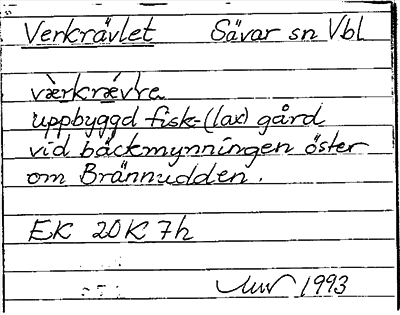 Verkrävlet Sävar sn Vbl
vèrkrǽvḷe
uppbyggd fisk-(lax) gård
vid bäckmynningen öster
om Brännudden.
EK 20K 7h
1993